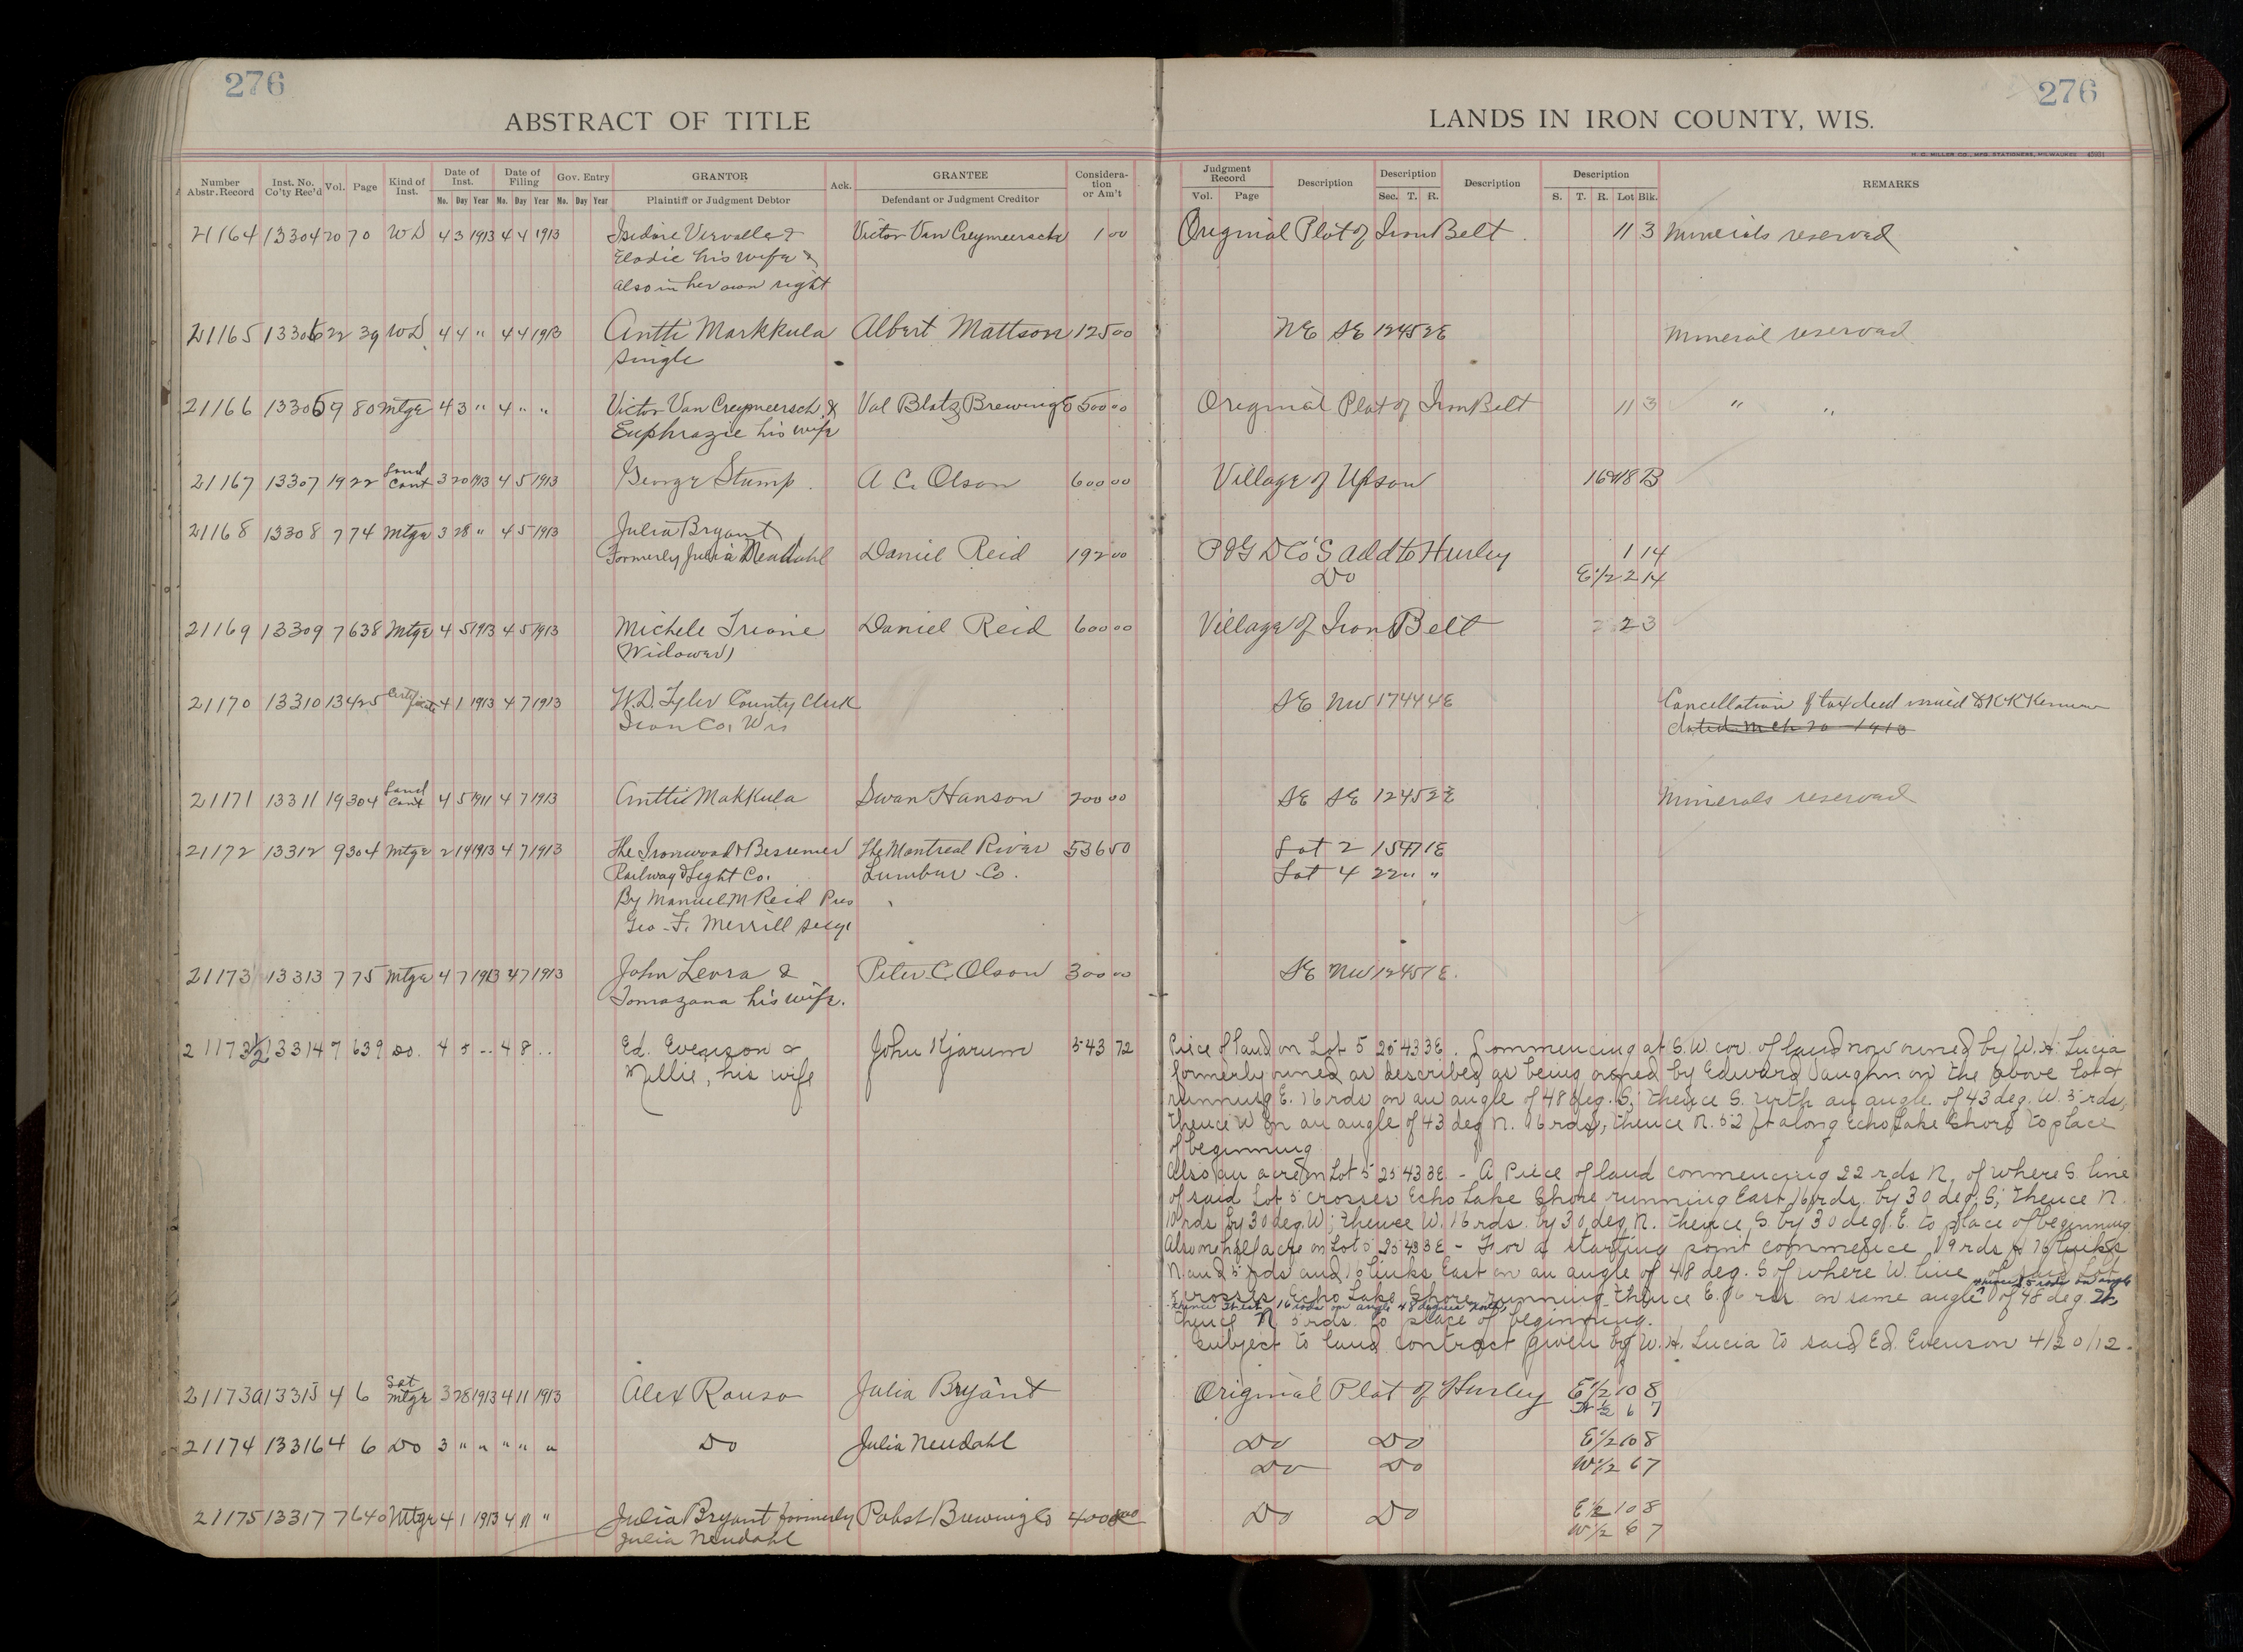 276
276
ABSTRACT OF TITLE
LANDS IN IRON COUNTY, WIS.
H. C. MILLER CO., MFG. STATIONERS, MILWAUKEE
Number Abstr. Record Inst. No. Co'ty Rec'd Vol. Page Kind of Inst. Date of Inst. Date of Filing Gov. Entry GRANTOR Ack. GRANTEE Consideration or Am't Judgment Record Description Description Description Description REMARKS
Mo. Day Year Mo. Day Year Mo. Day Year Plaintiff or Judgment Debtor Defendant or Judgment Creditor Vol. Page Sec. T. R. S. T. R. Lot Blk.
21164 13304 20 70 WD 4 3 1913 4 4 1913 Isidore Vervalle & Victor Van Creymeersch 1 00 Original Plat of Iron Belt 11 3 Minerals reserved
Elodie his wife &
also in her own right
21165 13305 22 39 WD 4 4 " 4 4 1913 Antti Markkula Albert Mattson 125 00 NE SE 12 45 2E Mineral reserved
single
21166 13306 9 80 Mtge 4 3 " 4 " " Victor Van Creymeersch & Val Blatz Brewing Co 500 00 Original Plat of Iron Belt 11 3 " "
Euphrazie his wife
21167 13307 19 22 Land Cont 3 20 1913 4 5 1913 George Stump A C. Olson 600 00 Village of Upson 16&18 B
21168 13308 7 74 Mtge 3 28 " 4 5 1913 Julia Bryant
Formerly Julia Neudahl Daniel Reid 192 00 P & G D Co's Add to Hurley 1 14
Do E 1/2 2 14
21169 13309 7 638 Mtge 4 5 1913 4 5 1913 Michele Irione Daniel Reid 600 00 Village of Iron Belt 2 3
(Widower)
21170 13310 13 425 Certificate 4 1 1913 4 7 1913 W. D. Tyler County Clerk SE NW 17 44 4E Cancellation of tax deed issued to K K Kennan
Iron Co, Wis dated Mch 20 1913
21171 13311 19 304 Land Cont 4 5 1911 4 7 1913 Antti Makkula Swan Hanson 200 00 SE SE 12 45 2E Minerals reserved
21172 13312 9 304 Mtge 2 14 1913 4 7 1913 The Ironwood & Bessemer The Montreal River 536 50 Lot 2 15 47 1E
Railway & Light Co. Lumber Co. Lot 4 22 " "
By Manuel M Reid Pres
Geo. F. Merrill Secy
21173 13313 7 75 Mtge 4 7 1913 4 7 1913 John Levra & Peter C. Olson 300 00 SE NW 12 45 1E.
Tomazana his wife.
21173 1/2 13314 7 639 Do. 4 5 .. 4 8 .. Ed. Evenson & John Kjarum 543 72 Piece of land on Lot 5 25 43 3E. Commencing at S.W. cor. of land now owned by W. H. Lucia
Nellie, his wife formerly owned as described as being owned by Edward Vaughn on the above Lot &
running E. 16 rds on an angle of 48 deg. S; thence S. with an angle of 43 deg. W. 5 rds,
thence W on an angle of 43 deg N. 16 rods, thence N. 52 ft along Echo Lake Shore to place
of beginning
Also an acre on Lot 5 25 43 3E - A Piece of land commencing 22 rds N. of where S. line
of said Lot 5 crosses Echo Lake Shore running East 16 rds. by 30 deg. S; thence N.
10 rds by 30 deg. W; thence W. 16 rds. by 30 deg N. thence S. by 30 deg. E. to place of beginning
Also one half acre on Lot 5 25 43 3E - For a starting point commence 19 rds & 76 links
N. and 5 rds and 10 links East on an angle of 48 deg. S of where W. line of said Lot
crosses Echo Lake Shore running thence E. 16 rds. on same angle of 48 deg thence S 5 rods on angle
thence West 16 rods on angle 48 degrees north,
thence N 5 rds. to place of beginning.
Subject to land contract given by W. H. Lucia to said Ed. Evenson 4/20/12.
21173a 13315 4 6 Sat Mtge 3 28 1913 4 11 1913 Alex Rauso Julia Bryant Original Plat of Hurley E 1/2 10 8
W 1/2 6 7
21174 13316 4 6 Do 3 " " " " " Do Julia Neudahl Do Do E 1/2 10 8
Do Do W 1/2 6 7
21175 13317 7 640 Mtge 4 1 1913 4 11 " Julia Bryant formerly Pabst Brewing Co 4000 00 Do Do E 1/2 10 8
Julia Neudahl W 1/2 6 7